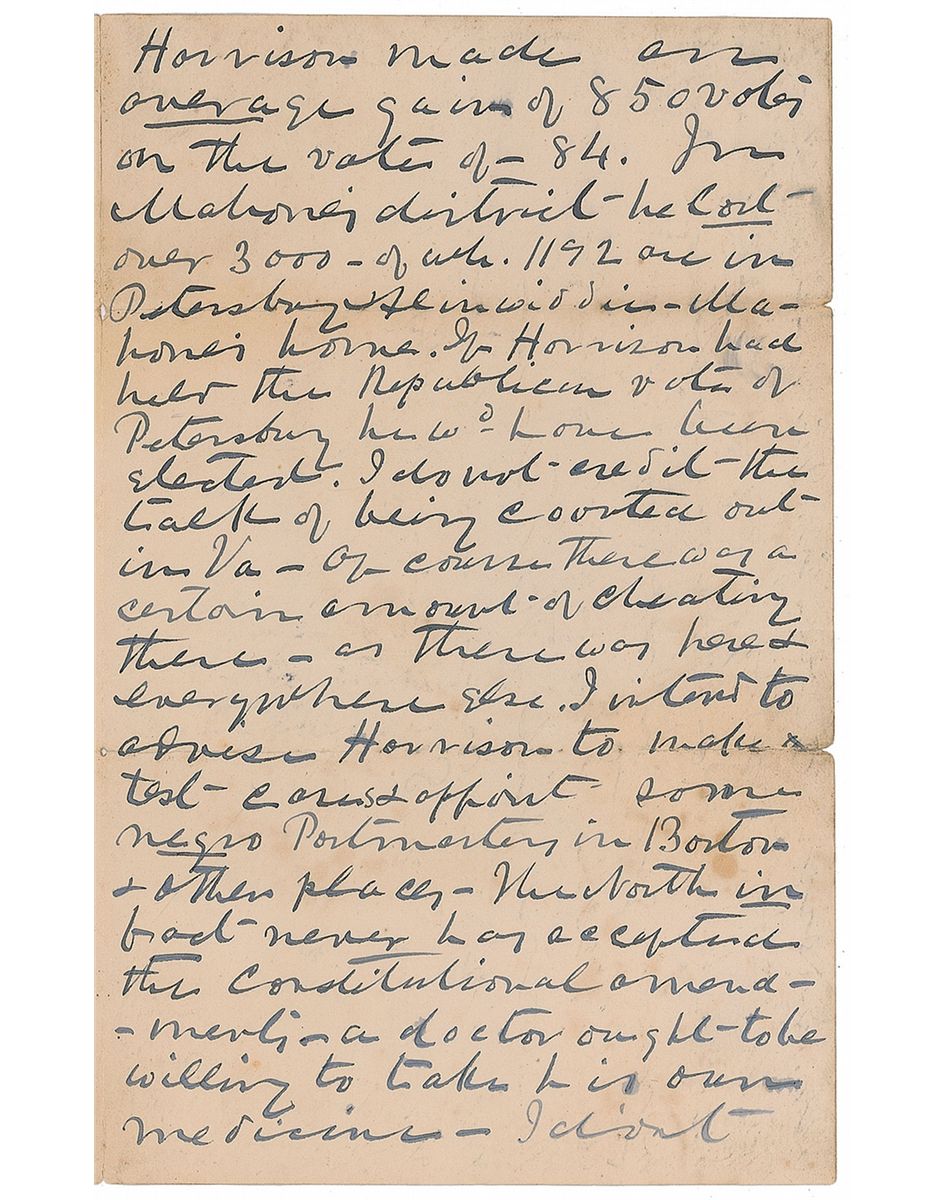 Harrison made an
average gain of 850 votes
on the vote of - 84. In
Mahone's district - he lost
over 3000 - of wh. 1192 are in
Petersburg & Dinwiddie - Ma-
hone's home. If Harrison had
held the Republican vote of
Petersburg he wd have been
elected. I do not credit the
talk of being counted out
in Va - Of course there was a
certain amount of cheating
there - as there was here &
everywhere else. I intend to
advise Harrison to make a
test case & appoint some
negro Postmasters in Boston
& other places - The North in
fact never has accepted
the Constitutional amend-
-ments - a doctor ought to be
willing to take his own
medicine - I don't